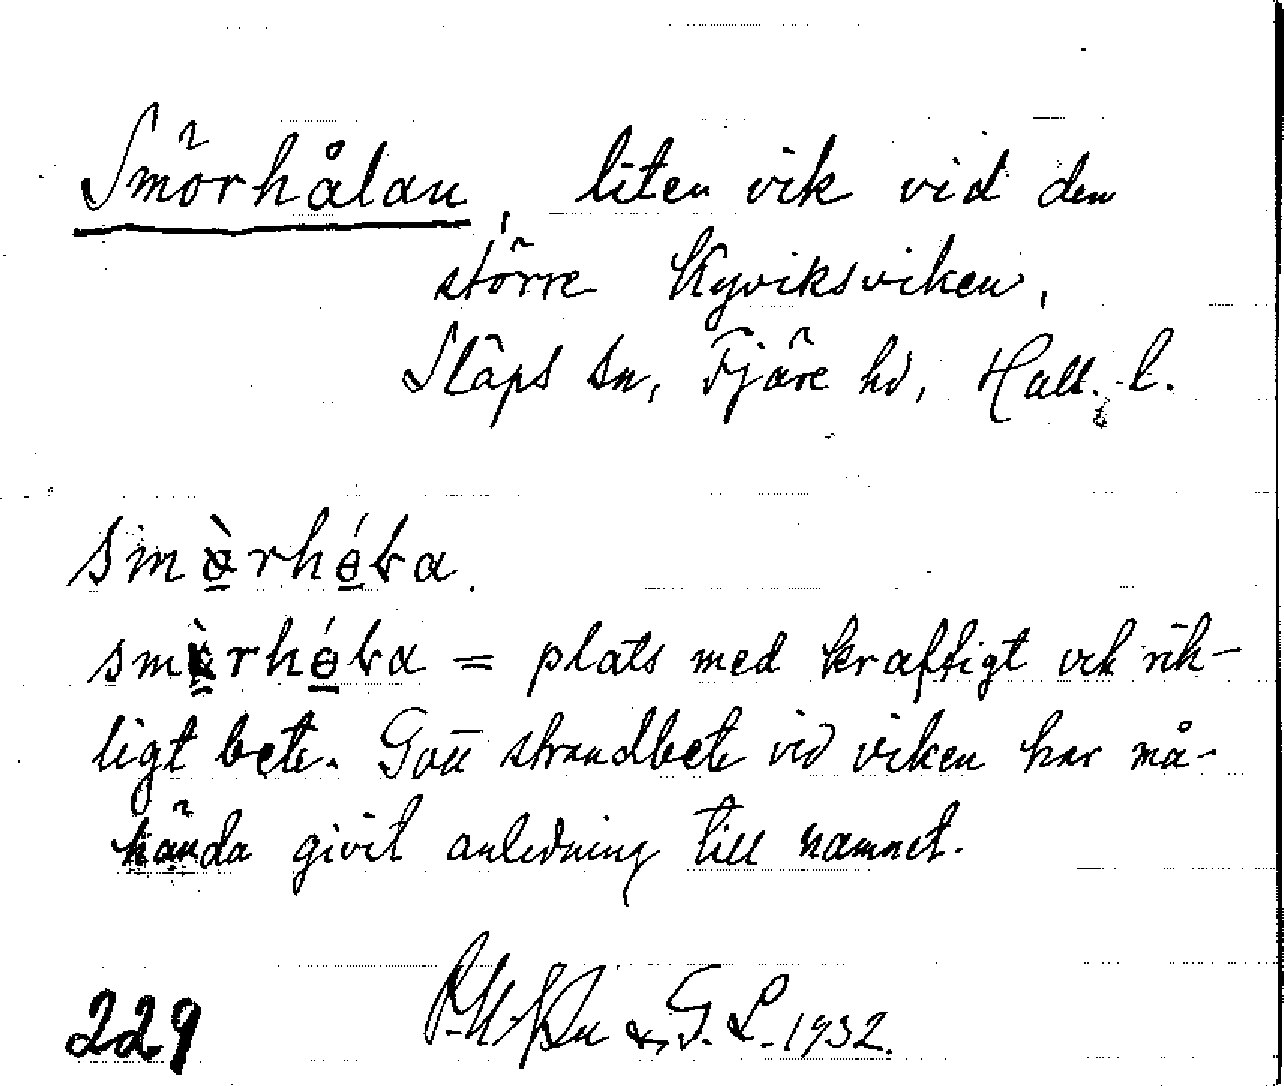 Smörhålan, liten vik vid den
större Kyviksviken,
Släps sn, Fjäre hd, Hall. l.
smɵ̀rhɵ́ɫa.
smɵ̀rhɵ́ɫa = plats med kraftigt och rik-
ligt bete. Gott strandbete vid viken har må-
hända givit anledning till namnet.
229 & G. L. 1932.